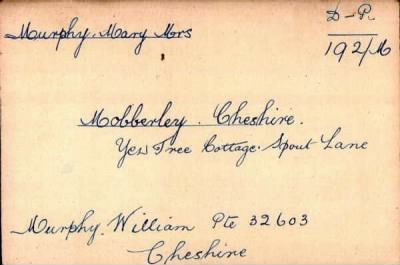 Murphy. Mary Mrs
D-P.
192/M
Mobberley. Cheshire.
Yew Tree Cottage. Spout Lane
Murphy. William Pte 32603
Cheshire